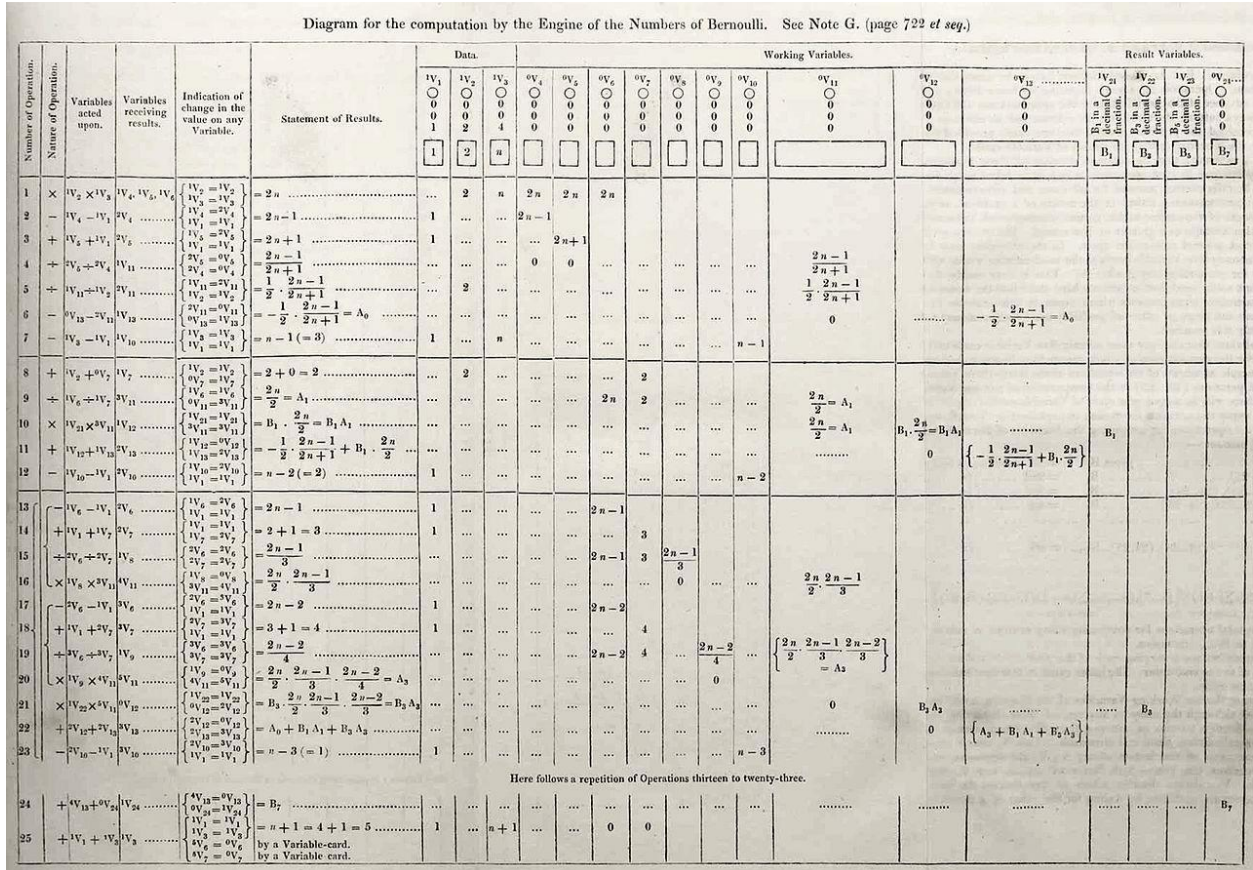 Diagram for the computation by the Engine of the Numbers of Bernoulli. See Note G. (page 722 et seq.)
Data. Working Variables. Result Variables.
Number of Operation. Nature of Operation. Variables acted upon. Variables receiving results. Indication of change in the value on any Variable. Statement of Results.
¹V₁ ¹V₂ ¹V₃ ⁰V₄ ⁰V₅ ⁰V₆ ⁰V₇ ⁰V₈ ⁰V₉ ⁰V₁₀ ⁰V₁₁ ⁰V₁₂ ⁰V₁₃ ¹V₂₁ ¹V₂₂ ¹V₂₃ ⁰V₂₄
○ ○ ○ ○ ○ ○ ○ ○ ○ ○ ○ ○ ○ ○ ○ ○ ○
0 0 0 0 0 0 0 0 0 0 0 0 0 B₁ in a decimal fraction. B₃ in a decimal fraction. B₅ in a decimal fraction. 0
0 0 0 0 0 0 0 0 0 0 0 0 0 0
0 0 0 0 0 0 0 0 0 0 0 0 0 0
1 2 4 0 0 0 0 0 0 0 0 0 0 0
1 2 n B₁ B₃ B₅ B₇
1 × ¹V₂ × ¹V₃ ¹V₄, ¹V₅, ¹V₆ {¹V₂ = ¹V₂ ¹V₃ = ¹V₃} = 2n ... 2 n 2n 2n 2n
2 − ¹V₄ − ¹V₁ ²V₄ {¹V₄ = ²V₄ ¹V₁ = ¹V₁} = 2n − 1 1 ... ... 2n − 1
3 + ¹V₅ + ¹V₁ ²V₅ {¹V₅ = ²V₅ ¹V₁ = ¹V₁} = 2n + 1 1 ... ... ... 2n + 1
4 ÷ ²V₅ ÷ ²V₄ ¹V₁₁ {²V₅ = ⁰V₅ ²V₄ = ⁰V₄} = (2n − 1)/(2n + 1) ... ... ... 0 0 ... ... ... ... ... (2n − 1)/(2n + 1)
5 ÷ ¹V₁₁ ÷ ¹V₂ ²V₁₁ {¹V₁₁ = ²V₁₁ ¹V₂ = ¹V₂} = 1/2 · (2n − 1)/(2n + 1) ... 2 ... ... ... ... ... ... ... ... 1/2 · (2n − 1)/(2n + 1)
6 − ⁰V₁₃ − ²V₁₁ ¹V₁₃ {²V₁₁ = ⁰V₁₁ ⁰V₁₃ = ¹V₁₃} = − 1/2 · (2n − 1)/(2n + 1) = A₀ ... ... ... ... ... ... ... ... ... ... 0 ...... − 1/2 · (2n − 1)/(2n + 1) = A₀
7 − ¹V₃ − ¹V₁ ¹V₁₀ {¹V₃ = ¹V₃ ¹V₁ = ¹V₁} = n − 1 (= 3) 1 ... n ... ... ... ... ... ... n − 1
8 + ¹V₂ + ⁰V₇ ¹V₇ {¹V₂ = ¹V₂ ⁰V₇ = ¹V₇} = 2 + 0 = 2 ... 2 ... ... ... ... 2
9 ÷ ¹V₆ ÷ ¹V₇ ³V₁₁ {¹V₆ = ¹V₆ ⁰V₁₁ = ³V₁₁} = 2n/2 = A₁ ... ... ... ... ... 2n 2 ... ... ... 2n/2 = A₁
10 × ¹V₂₁ × ³V₁₁ ¹V₁₂ {¹V₂₁ = ¹V₂₁ ³V₁₁ = ³V₁₁} = B₁ · 2n/2 = B₁A₁ ... ... ... ... ... ... ... ... ... ... 2n/2 = A₁ B₁ · 2n/2 = B₁A₁ ......... B₁
11 + ¹V₁₂ + ¹V₁₃ ²V₁₃ {¹V₁₂ = ⁰V₁₂ ¹V₁₃ = ²V₁₃} = − 1/2 · (2n − 1)/(2n + 1) + B₁ · 2n/2 ... ... ... ... ... ... ... ... ... ... ......... 0 {− 1/2 · (2n − 1)/(2n + 1) + B₁ · 2n/2}
12 − ¹V₁₀ − ¹V₁ ²V₁₀ {¹V₁₀ = ²V₁₀ ¹V₁ = ¹V₁} = n − 2 (= 2) 1 ... ... ... ... ... ... ... ... n − 2
13 − ¹V₆ − ¹V₁ ²V₆ {¹V₆ = ²V₆ ¹V₁ = ¹V₁} = 2n − 1 1 ... ... ... ... 2n − 1
14 + ¹V₁ + ¹V₇ ²V₇ {¹V₁ = ¹V₁ ¹V₇ = ²V₇} = 2 + 1 = 3 1 ... ... ... ... ... 3
15 ÷ ²V₆ ÷ ²V₇ ¹V₈ {²V₆ = ²V₆ ²V₇ = ²V₇} = (2n − 1)/3 ... ... ... ... ... 2n − 1 3 (2n − 1)/3
16 × ¹V₈ × ³V₁₁ ⁴V₁₁ {¹V₈ = ⁰V₈ ³V₁₁ = ⁴V₁₁} = 2n/2 · (2n − 1)/3 ... ... ... ... ... ... ... 0 ... ... 2n/2 · (2n − 1)/3
17 − ²V₆ − ¹V₁ ³V₆ {²V₆ = ³V₆ ¹V₁ = ¹V₁} = 2n − 2 1 ... ... ... ... 2n − 2
18 + ¹V₁ + ²V₇ ³V₇ {²V₇ = ³V₇ ¹V₁ = ¹V₁} = 3 + 1 = 4 1 ... ... ... ... ... 4
19 ÷ ³V₆ ÷ ³V₇ ¹V₉ {³V₆ = ³V₆ ³V₇ = ³V₇} = (2n − 2)/4 ... ... ... ... ... 2n − 2 4 ... (2n − 2)/4 ... {2n/2 · (2n − 1)/3 · (2n − 2)/3} = A₃
20 × ¹V₉ × ⁴V₁₁ ⁵V₁₁ {¹V₉ = ⁰V₉ ⁴V₁₁ = ⁵V₁₁} = 2n/2 · (2n − 1)/3 · (2n − 2)/4 = A₃ ... ... ... ... ... ... ... ... 0
21 × ¹V₂₂ × ⁵V₁₁ ⁰V₁₂ {¹V₂₂ = ¹V₂₂ ⁰V₁₂ = ²V₁₂} = B₃ · 2n/2 · (2n − 1)/3 · (2n − 2)/3 = B₃A₃ ... ... ... ... ... ... ... ... ... ... 0 B₃A₃ ......... B₃
22 + ²V₁₂ + ²V₁₃ ³V₁₃ {²V₁₂ = ⁰V₁₂ ²V₁₃ = ³V₁₃} = A₀ + B₁A₁ + B₃A₃ ... ... ... ... ... ... ... ... ... ... ......... 0 {A₃ + B₁A₁ + B₃A₃}
23 − ²V₁₀ − ¹V₁ ³V₁₀ {²V₁₀ = ³V₁₀ ¹V₁ = ¹V₁} = n − 3 (= 1) 1 ... ... ... ... ... ... ... ... n − 3
Here follows a repetition of Operations thirteen to twenty-three.
24 + ⁴V₁₃ + ⁰V₂₄ ¹V₂₄ {⁴V₁₃ = ⁰V₁₃ ⁰V₂₄ = ¹V₂₄} = B₇ ... ... ... ... ... ... ... ... ... ... B₇
25 + ¹V₁ + ¹V₃ ¹V₃ {¹V₁ = ¹V₁ ¹V₃ = ¹V₃ ⁵V₆ = ⁰V₆ ⁵V₇ = ⁰V₇} = n + 1 = 4 + 1 = 5 1 ... n + 1 ... ... 0 0
by a Variable-card.
by a Variable card.